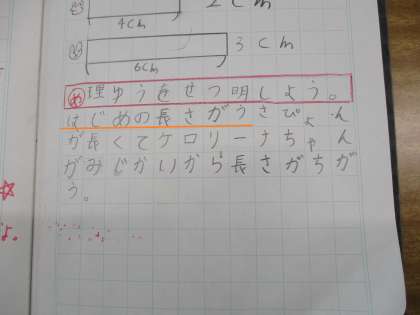 2cm
4cm
3cm
6cm
め 理ゆうをせつ明しよう。
はじめの長さがうさぴょん
が長くてケロリーナちゃん
がみじかいから長さがちが
う。